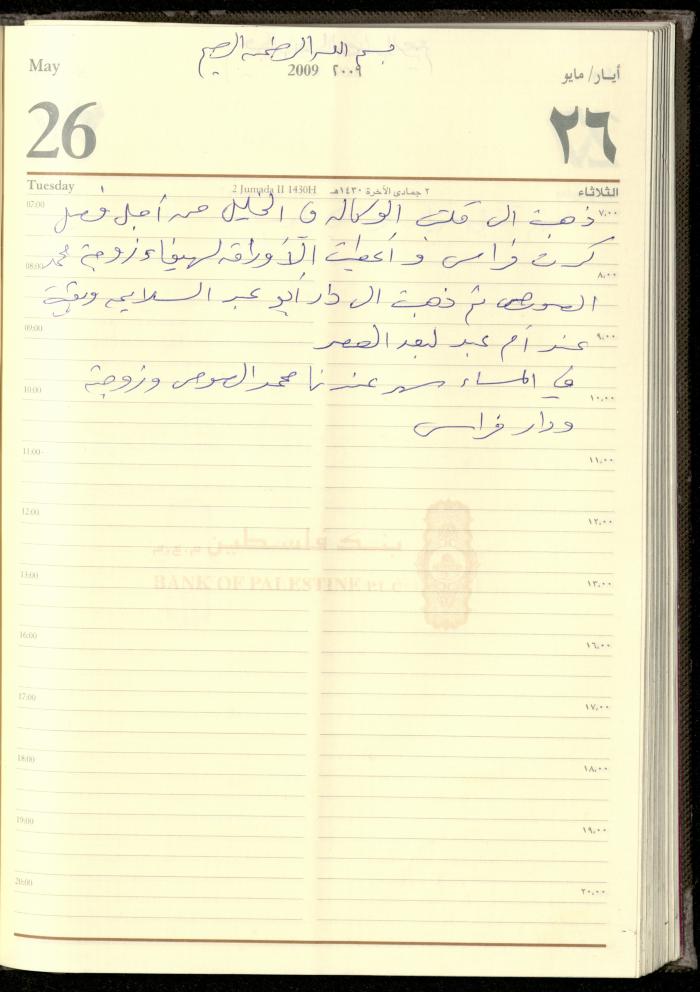 بسم الله الرحمن الرحيم
May 2009 ٢٠٠٩ أيـار/ مايو
26 ٢٦
Tuesday 2 Jumada II 1430H ٢ جمادى الآخرة ١٤٣٠هـ الثلاثاء
07:00 ذهبت الى الوكاله في الخليل من أجل فصل ٧,٠٠
كرت فراس و أعطيت الأوراق لهيفاء زوجة محمد
08:00 ٨,٠٠
العوص ثم ذهبت الى دار أبو عبد السلام وبقيت
09:00 ٩,٠٠
عند أم عبد لبعد العصر
في المساء سهر عندنا محمد العوص وزوجته
10:00 ١٠,٠٠
ودار فراس
11:00 ١١,٠٠
12:00 ١٢,٠٠
بنك فلسطين م.ع.م
BANK OF PALESTINE PLC
13:00 ١٣,٠٠
16:00 ١٦,٠٠
17:00 ١٧,٠٠
18:00 ١٨,٠٠
19:00 ١٩,٠٠
20:00 ٢٠,٠٠